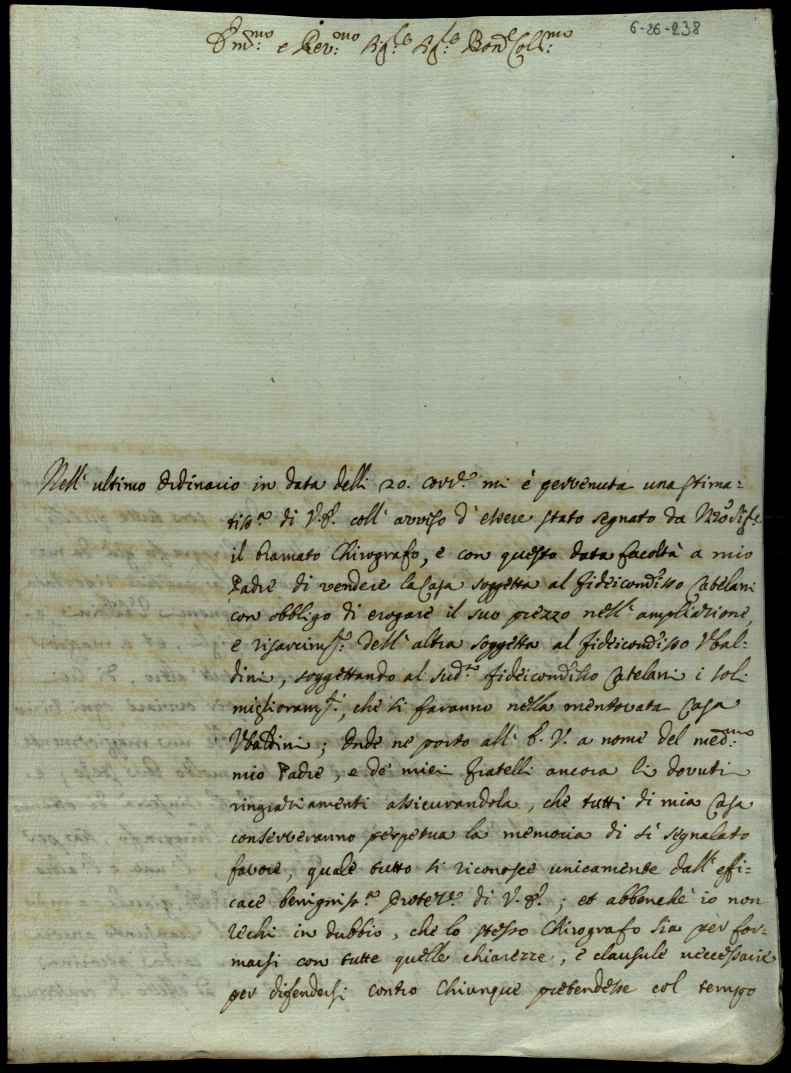 6-26-238
Em:mo e Rev:mo Sig:re Sig:re Pron:e Coll:mo
Nell' ultimo Ordinario in data delli 20. corr:e mi è pervenuta una stima=
tiss:ma di V.S. coll' avviso d' essere stato segnato da Nro Sig:re
il bramato Chirografo, e con questo data facoltà a mio
Padre di vendere la Casa soggetta al fideicomisso Catelani
con obbligo di erogare il suo prezzo nell' ampliazione,
e risarcim:ti dell' altra soggetta al fideicomisso Ubal=
dini, soggettando al sud:o fideicomisso Catelani i soli
miglioram:ti, che si faranno nella mentovata Casa
Ubaldini; Onde ne porto all' E. V. a nome del med:mo
mio Padre, e de miei fratelli ancora li dovuti
ringraziamenti assicurandola, che tutti di mia Casa
conserveranno perpetua la memoria di sì segnalato
favore, quale tutto si riconosce unicamente dall' effi=
cace benignis:ma Protez:e di V.S.; et abbenche io non
rechi in dubbio, che lo stesso Chirografo sia per for=
marsi con tutte quelle chiarezze, e clausule neccessarie
per difendersi contro Chiunque pretendesse col tempo